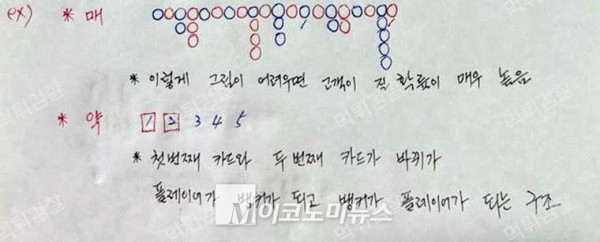 ex) * 매
* 이렇게 그림이 어려우면 고객이 질 확률이 매우 높음
* 약 1 2 3 4 5
* 첫번째 카드와 두번째 카드가 바뀌가
플레이어가 뱅커가 되고 뱅커가 플레이어가 되는 구조
마이코노미뉴스